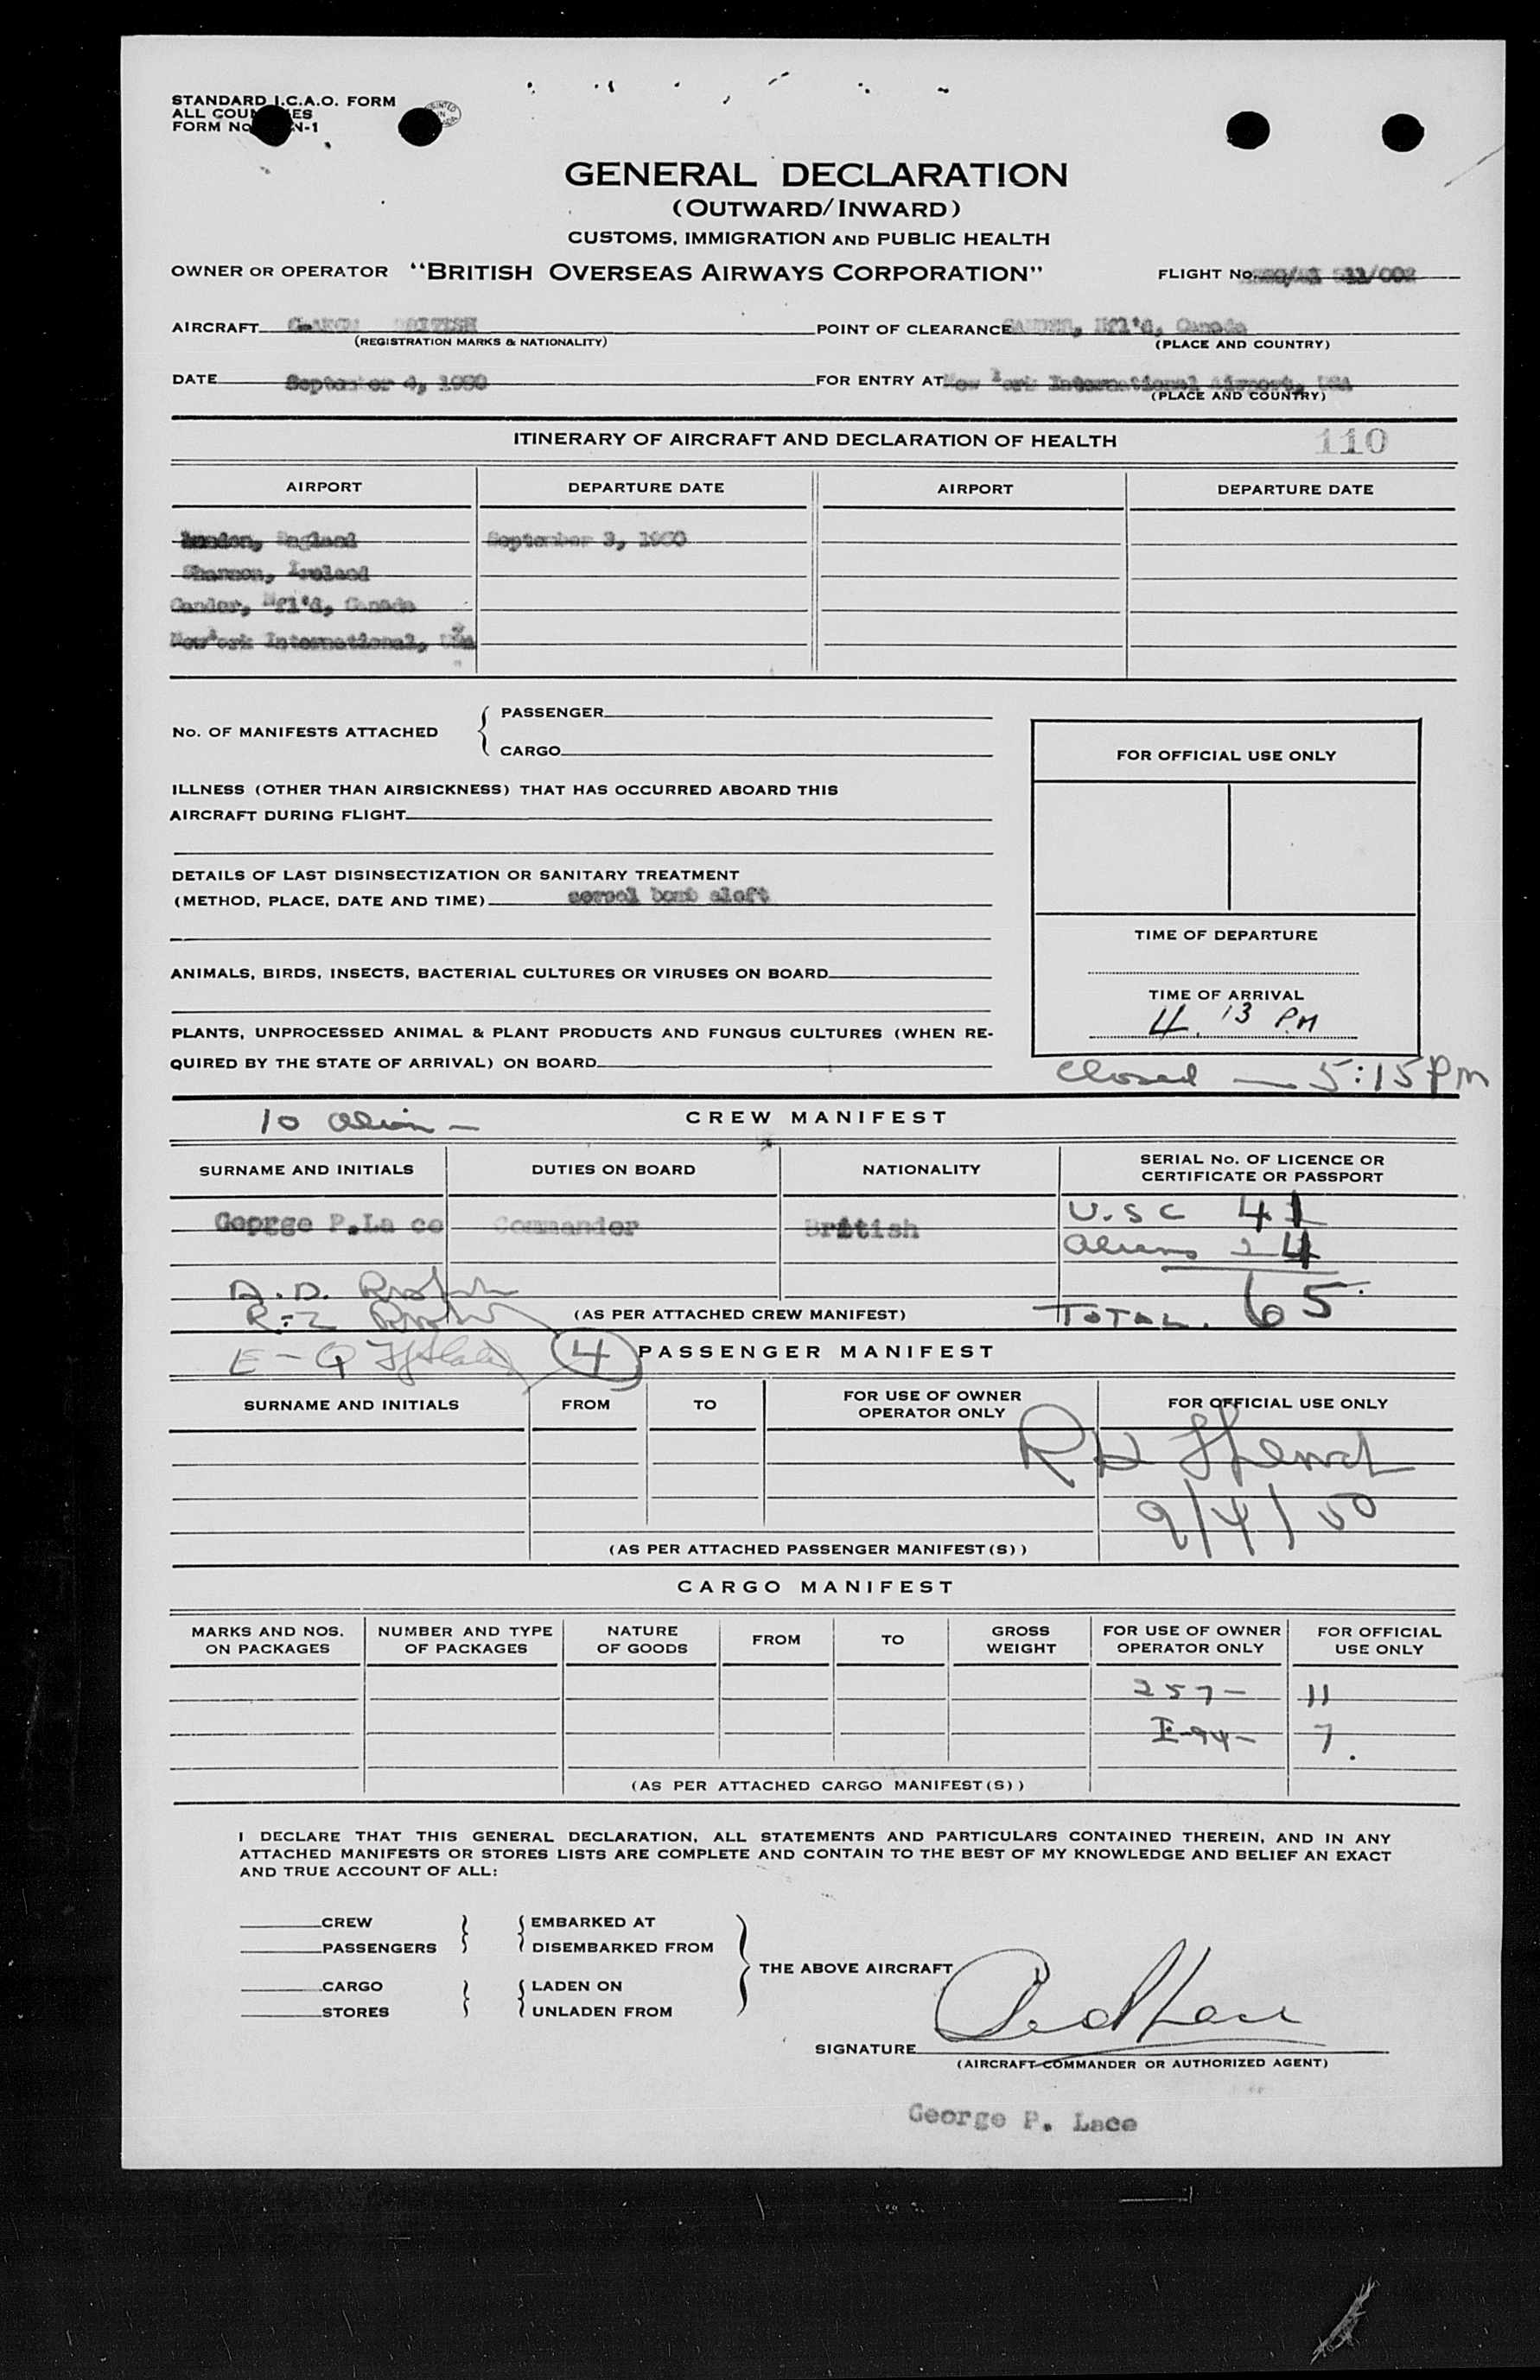 STANDARD I.C.A.O. FORM
ALL COUNTRIES
FORM No N-1
GENERAL DECLARATION
(OUTWARD/INWARD)
CUSTOMS, IMMIGRATION AND PUBLIC HEALTH
OWNER OR OPERATOR "BRITISH OVERSEAS AIRWAYS CORPORATION" FLIGHT No. 511/002
AIRCRAFT BRITISH POINT OF CLEARANCE GANDER, Nfl'd, Canada
(REGISTRATION MARKS & NATIONALITY) (PLACE AND COUNTRY)
DATE September 4, 1950 FOR ENTRY AT New York International Airport, USA
(PLACE AND COUNTRY)
ITINERARY OF AIRCRAFT AND DECLARATION OF HEALTH 110
AIRPORT DEPARTURE DATE AIRPORT DEPARTURE DATE
London, England September 3, 1950
Shannon, Ireland
Gander, Nfl'd, Canada
New York International, USA
No. OF MANIFESTS ATTACHED { PASSENGER
CARGO
FOR OFFICIAL USE ONLY
ILLNESS (OTHER THAN AIRSICKNESS) THAT HAS OCCURRED ABOARD THIS
AIRCRAFT DURING FLIGHT
DETAILS OF LAST DISINSECTIZATION OR SANITARY TREATMENT
(METHOD, PLACE, DATE AND TIME) aerosol bomb aloft
TIME OF DEPARTURE
ANIMALS, BIRDS, INSECTS, BACTERIAL CULTURES OR VIRUSES ON BOARD
TIME OF ARRIVAL
4.13 PM
PLANTS, UNPROCESSED ANIMAL & PLANT PRODUCTS AND FUNGUS CULTURES (WHEN RE-
QUIRED BY THE STATE OF ARRIVAL) ON BOARD
Closed — 5:15 Pm
10 alien — CREW MANIFEST
SURNAME AND INITIALS DUTIES ON BOARD NATIONALITY SERIAL No. OF LICENCE OR
CERTIFICATE OR PASSPORT
George P.La ce Commander British U.S C 41
aliens 24
A. D.
(AS PER ATTACHED CREW MANIFEST) TOTAL. 65
4 PASSENGER MANIFEST
SURNAME AND INITIALS FROM TO FOR USE OF OWNER
OPERATOR ONLY FOR OFFICIAL USE ONLY
9/4/50
(AS PER ATTACHED PASSENGER MANIFEST(S))
CARGO MANIFEST
MARKS AND NOS.
ON PACKAGES NUMBER AND TYPE
OF PACKAGES NATURE
OF GOODS FROM TO GROSS
WEIGHT FOR USE OF OWNER
OPERATOR ONLY FOR OFFICIAL
USE ONLY
257 — 11
I-94 — 7.
(AS PER ATTACHED CARGO MANIFEST(S))
I DECLARE THAT THIS GENERAL DECLARATION, ALL STATEMENTS AND PARTICULARS CONTAINED THEREIN, AND IN ANY
ATTACHED MANIFESTS OR STORES LISTS ARE COMPLETE AND CONTAIN TO THE BEST OF MY KNOWLEDGE AND BELIEF AN EXACT
AND TRUE ACCOUNT OF ALL:
CREW EMBARKED AT
PASSENGERS DISEMBARKED FROM
THE ABOVE AIRCRAFT
CARGO LADEN ON
STORES UNLADEN FROM
SIGNATURE
(AIRCRAFT COMMANDER OR AUTHORIZED AGENT)
George P. Lace